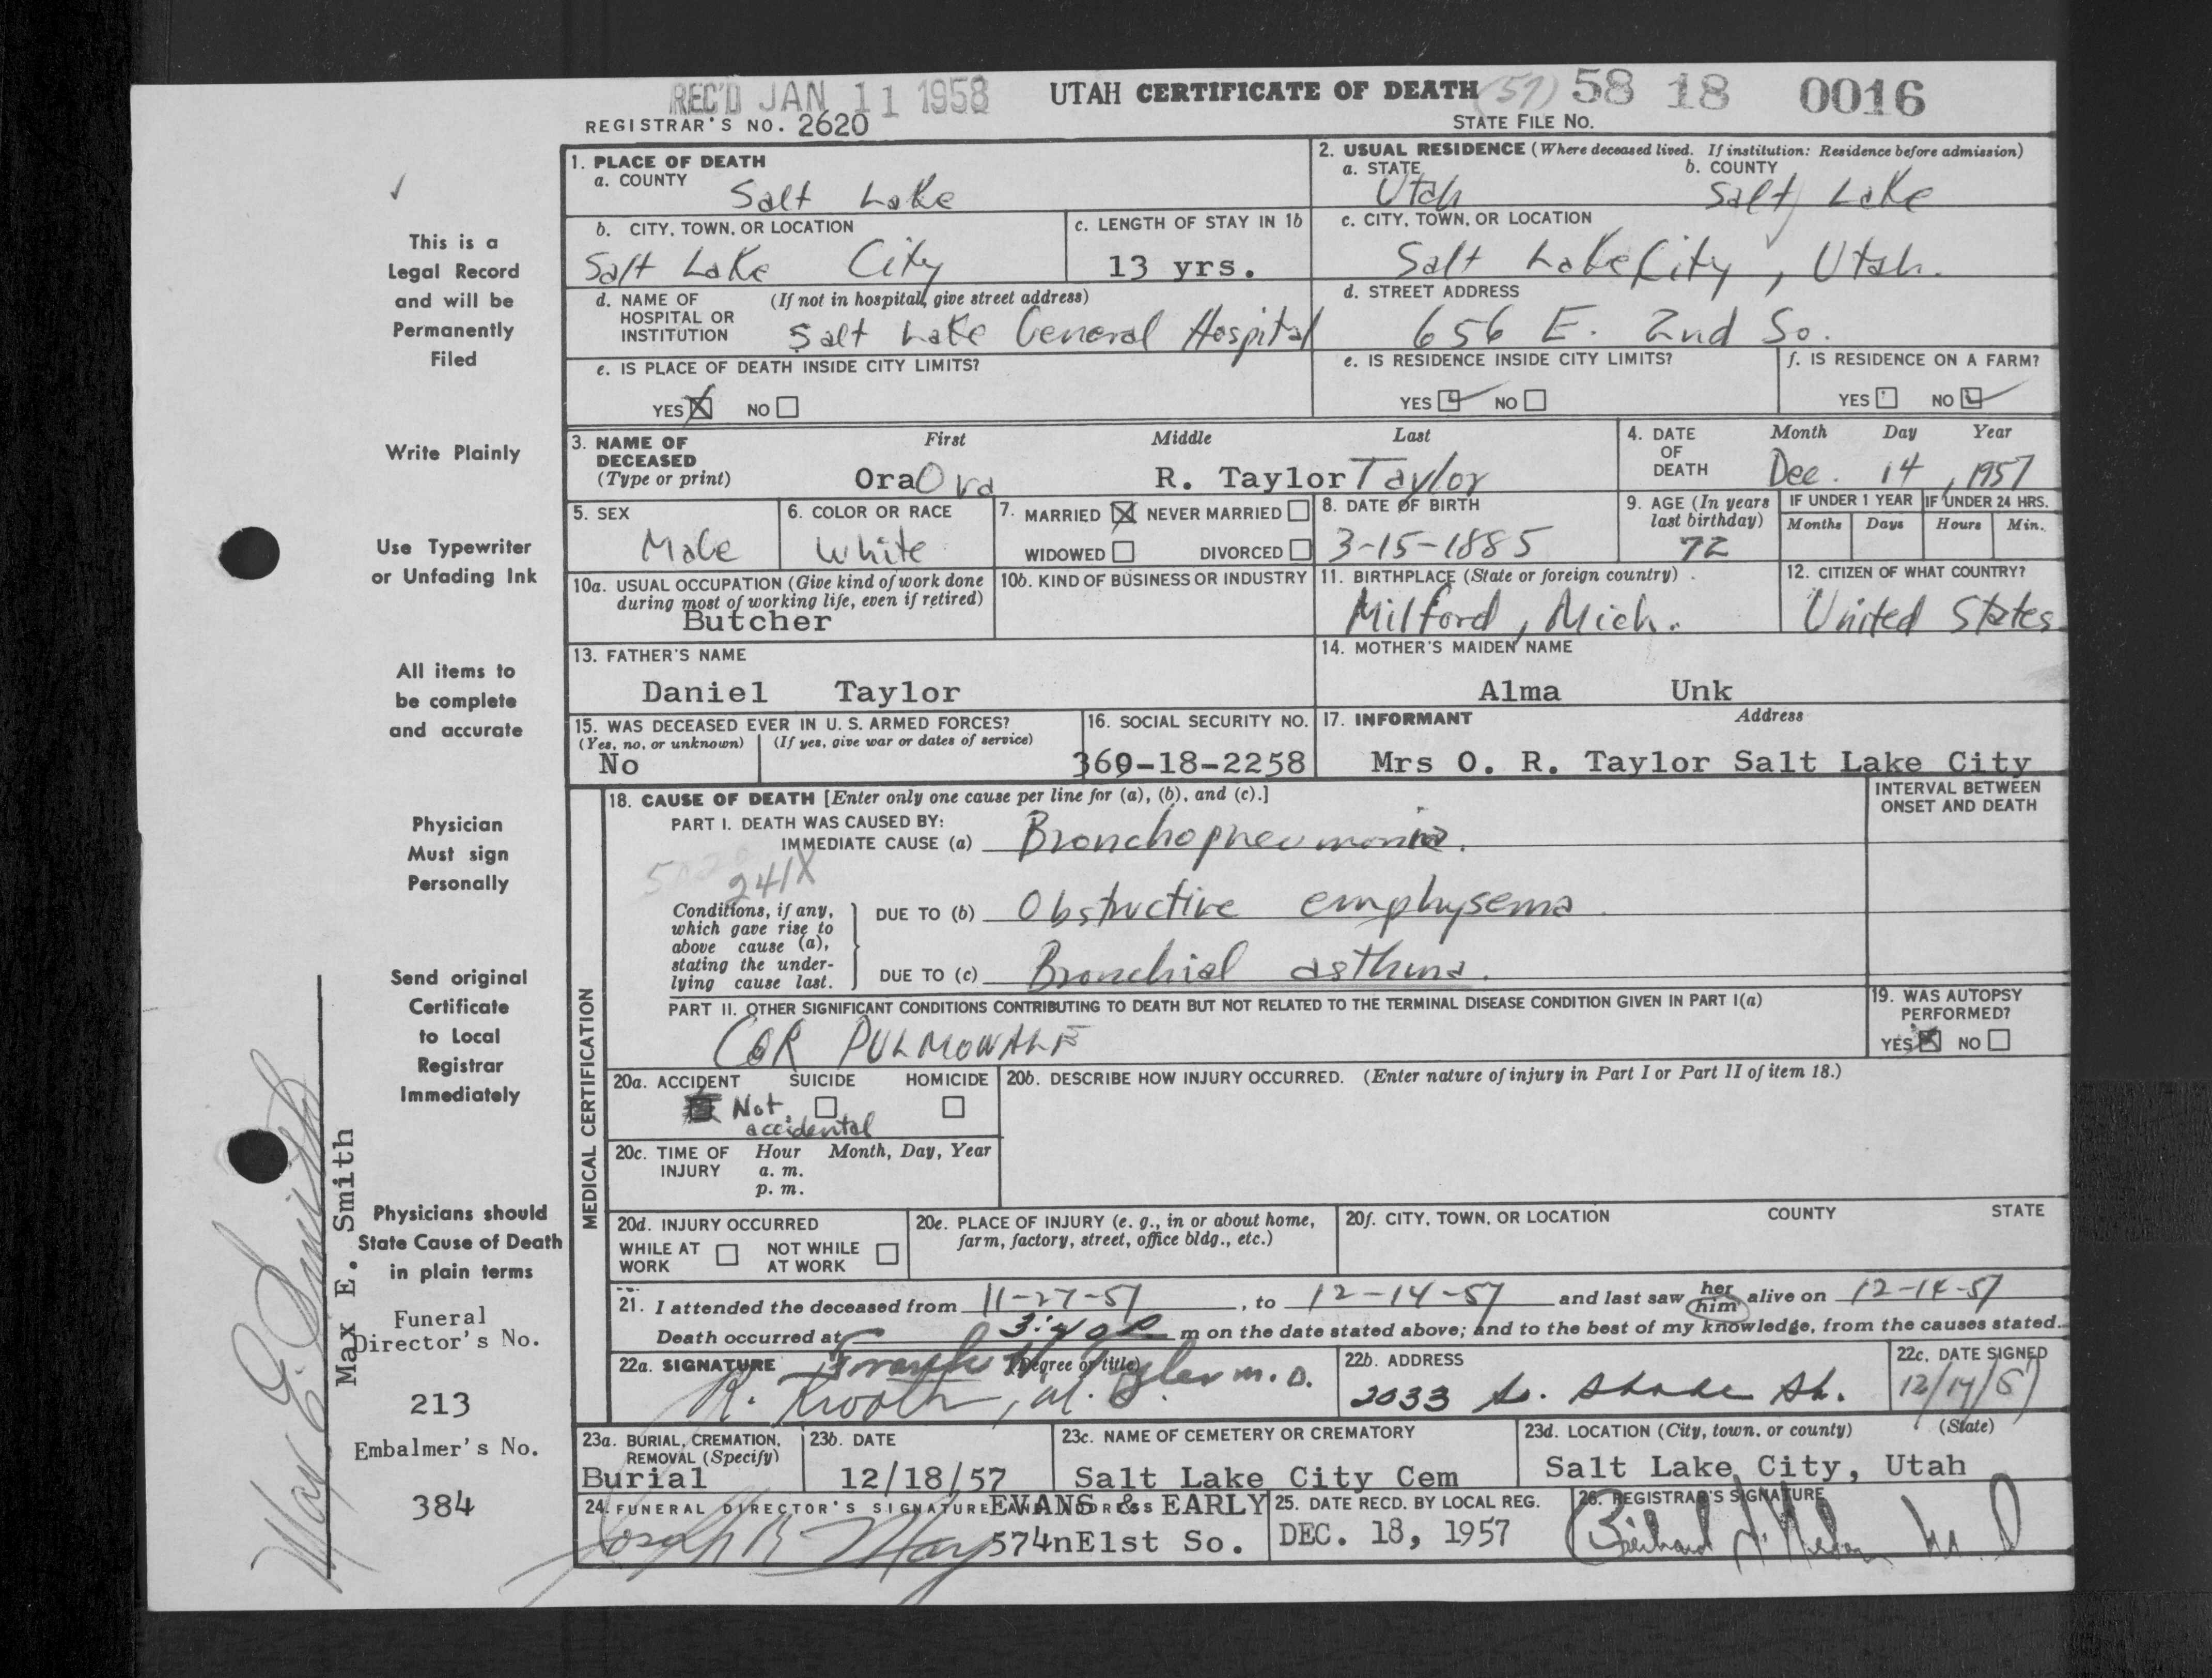 REC'D JAN 11 1958 UTAH CERTIFICATE OF DEATH (57) 58 18 0016
REGISTRAR'S NO. 2620 STATE FILE NO.
1. PLACE OF DEATH
a. COUNTY Salt Lake
2. USUAL RESIDENCE (Where deceased lived. If institution: Residence before admission)
a. STATE Utah b. COUNTY Salt Lake
b. CITY, TOWN, OR LOCATION Salt Lake City
c. LENGTH OF STAY IN 1b 13 yrs.
c. CITY, TOWN, OR LOCATION Salt Lake City, Utah.
d. NAME OF HOSPITAL OR INSTITUTION (If not in hospital, give street address) Salt Lake General Hospital
d. STREET ADDRESS 656 E. 2nd So.
e. IS PLACE OF DEATH INSIDE CITY LIMITS?
YES X NO
e. IS RESIDENCE INSIDE CITY LIMITS?
YES ✓ NO
f. IS RESIDENCE ON A FARM?
YES NO ✓
3. NAME OF DECEASED (Type or print)
First Middle Last
Ora Ora R. Taylor Taylor
4. DATE OF DEATH Month Day Year
Dec. 14, 1957
5. SEX Male
6. COLOR OR RACE White
7. MARRIED X NEVER MARRIED
WIDOWED DIVORCED
8. DATE OF BIRTH 3-15-1885
9. AGE (In years last birthday) 72
IF UNDER 1 YEAR Months Days
IF UNDER 24 HRS. Hours Min.
10a. USUAL OCCUPATION (Give kind of work done during most of working life, even if retired)
Butcher
10b. KIND OF BUSINESS OR INDUSTRY
11. BIRTHPLACE (State or foreign country)
Milford, Mich.
12. CITIZEN OF WHAT COUNTRY?
United States
13. FATHER'S NAME
Daniel Taylor
14. MOTHER'S MAIDEN NAME
Alma Unk
15. WAS DECEASED EVER IN U. S. ARMED FORCES?
(Yes, no, or unknown) (If yes, give war or dates of service)
No
16. SOCIAL SECURITY NO.
369-18-2258
17. INFORMANT Address
Mrs O. R. Taylor Salt Lake City
MEDICAL CERTIFICATION
18. CAUSE OF DEATH [Enter only one cause per line for (a), (b), and (c).]
INTERVAL BETWEEN ONSET AND DEATH
PART I. DEATH WAS CAUSED BY:
IMMEDIATE CAUSE (a) Bronchopneumonia.
241X
Conditions, if any, which gave rise to above cause (a), stating the underlying cause last.
DUE TO (b) Obstructive emphysema
DUE TO (c) Bronchial asthma.
PART II. OTHER SIGNIFICANT CONDITIONS CONTRIBUTING TO DEATH BUT NOT RELATED TO THE TERMINAL DISEASE CONDITION GIVEN IN PART I(a)
COR PULMONALE
19. WAS AUTOPSY PERFORMED?
YES X NO
20a. ACCIDENT SUICIDE HOMICIDE
Not accidental
20b. DESCRIBE HOW INJURY OCCURRED. (Enter nature of injury in Part I or Part II of item 18.)
20c. TIME OF INJURY Hour Month, Day, Year
a. m.
p. m.
20d. INJURY OCCURRED
WHILE AT WORK NOT WHILE AT WORK
20e. PLACE OF INJURY (e. g., in or about home, farm, factory, street, office bldg., etc.)
20f. CITY, TOWN, OR LOCATION COUNTY STATE
21. I attended the deceased from 11-27-57, to 12-14-57 and last saw her him alive on 12-14-57
Death occurred at 3:40 P m on the date stated above; and to the best of my knowledge, from the causes stated.
22a. SIGNATURE (Degree or title)
Frank H. Tyler M.D.
22b. ADDRESS
2033 So. State St.
22c. DATE SIGNED
12/17/57
23a. BURIAL, CREMATION, REMOVAL (Specify)
Burial
23b. DATE
12/18/57
23c. NAME OF CEMETERY OR CREMATORY
Salt Lake City Cem
23d. LOCATION (City, town, or county) (State)
Salt Lake City, Utah
24. FUNERAL DIRECTOR'S SIGNATURE AND ADDRESS EVANS & EARLY
574nE1st So.
25. DATE RECD. BY LOCAL REG.
DEC. 18, 1957
26. REGISTRAR'S SIGNATURE
This is a
Legal Record
and will be
Permanently
Filed
Write Plainly
Use Typewriter
or Unfading Ink
All items to
be complete
and accurate
Physician
Must sign
Personally
Send original
Certificate
to Local
Registrar
Immediately
Physicians should
State Cause of Death
in plain terms
Funeral
Director's No.
213
Embalmer's No.
384
Max E. Smith
Max E. Smith